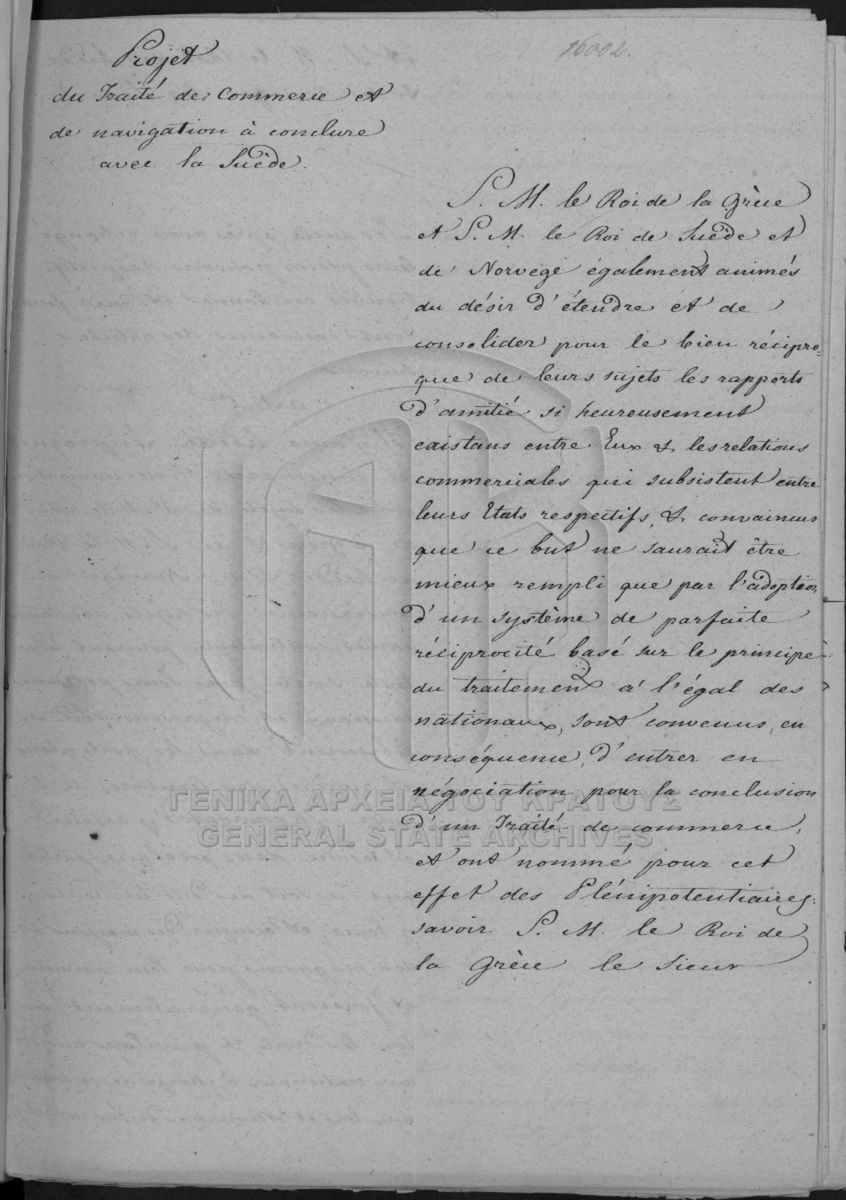 16002.
Projet
du Traité de Commerce et
de navigation à conclure
avec la Suède.
S. M. le Roi de la Grèce
et S. M. le Roi de Suède et
de Norvège également animés
du désir d'étendre et de
consolider pour le bien récipro-
que de leurs sujets les rapports
d'amitié si heureusement
existans entre Eux & les relations
commerciales qui subsistent entre
leurs Etats respectifs, & convaincus
que ce but ne saurait être
mieux rempli que par l'adoption
d'un système de parfaite
réciprocité basé sur le principe
du traitement à l'égal des
nationaux, sont convenus, en
conséquence, d'entrer en
négociation pour la conclusion
d'un Traité de commerce,
et ont nommé pour cet
effet des Plénipotentiaires,
savoir S. M. le Roi de
la Grèce le Sieur
ΓΕΝΙΚΑ ΑΡΧΕΙΑ ΤΟΥ ΚΡΑΤΟΥΣ
GENERAL STATE ARCHIVES